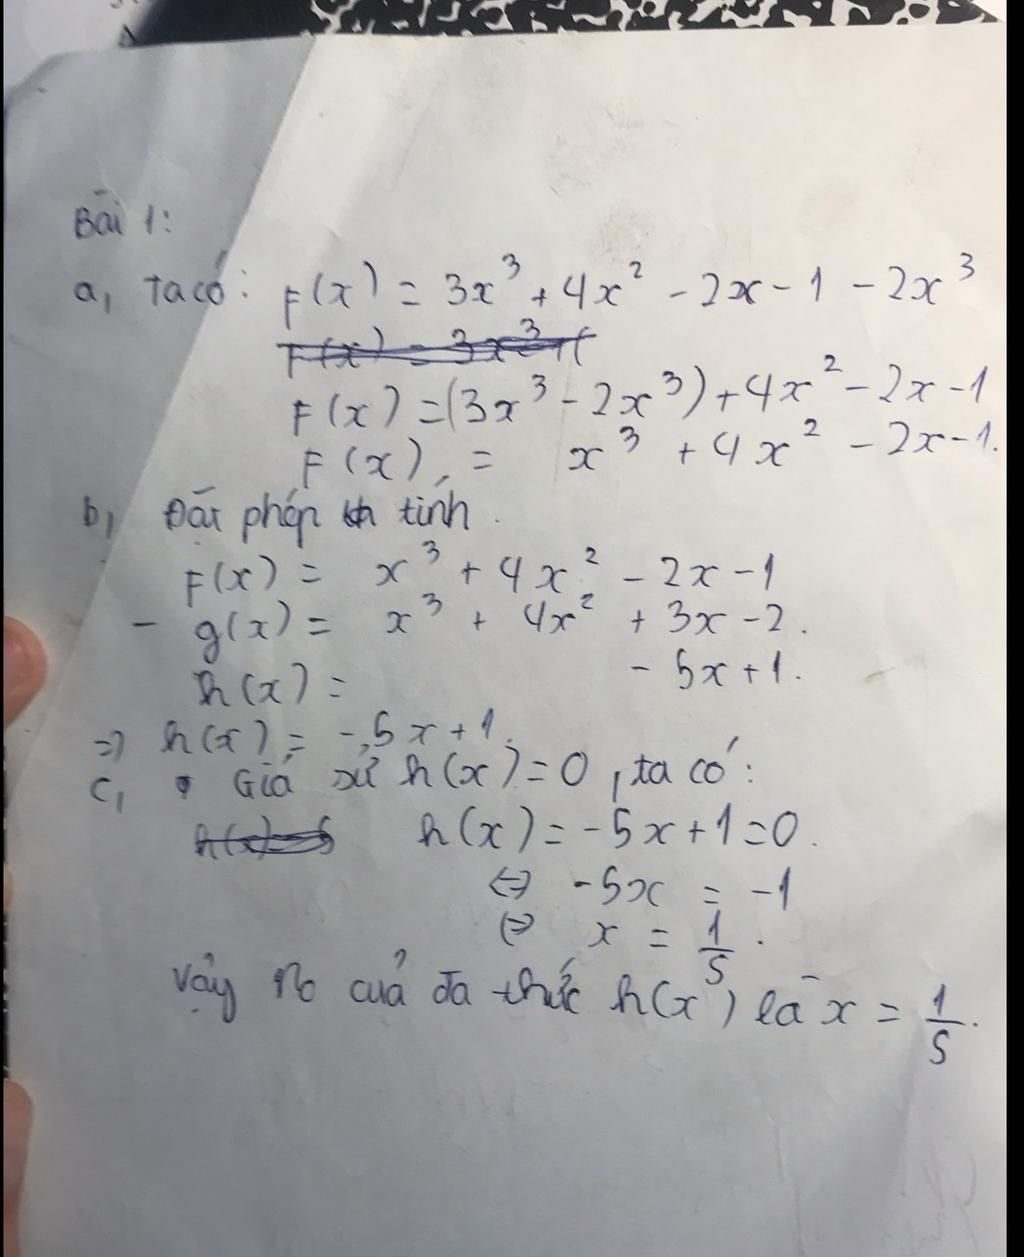 Bài 1:
a, Ta có: F(x) = 3x³ + 4x² - 2x - 1 - 2x³
F(x) = (3x³ - 2x³) + 4x² - 2x - 1
F(x) = x³ + 4x² - 2x - 1.
b, Đặt phép tính.
F(x) = x³ + 4x² - 2x - 1
- g(x) = x³ + 4x² + 3x - 2.
h(x) = - 5x + 1.
=> h(x) = -5x + 1.
c, Giả sử h(x) = 0, ta có:
h(x) = -5x + 1 = 0.
⇔ -5x = -1
⇔ x = 1/5.
Vậy no của đa thức h(x) là x = 1/5.